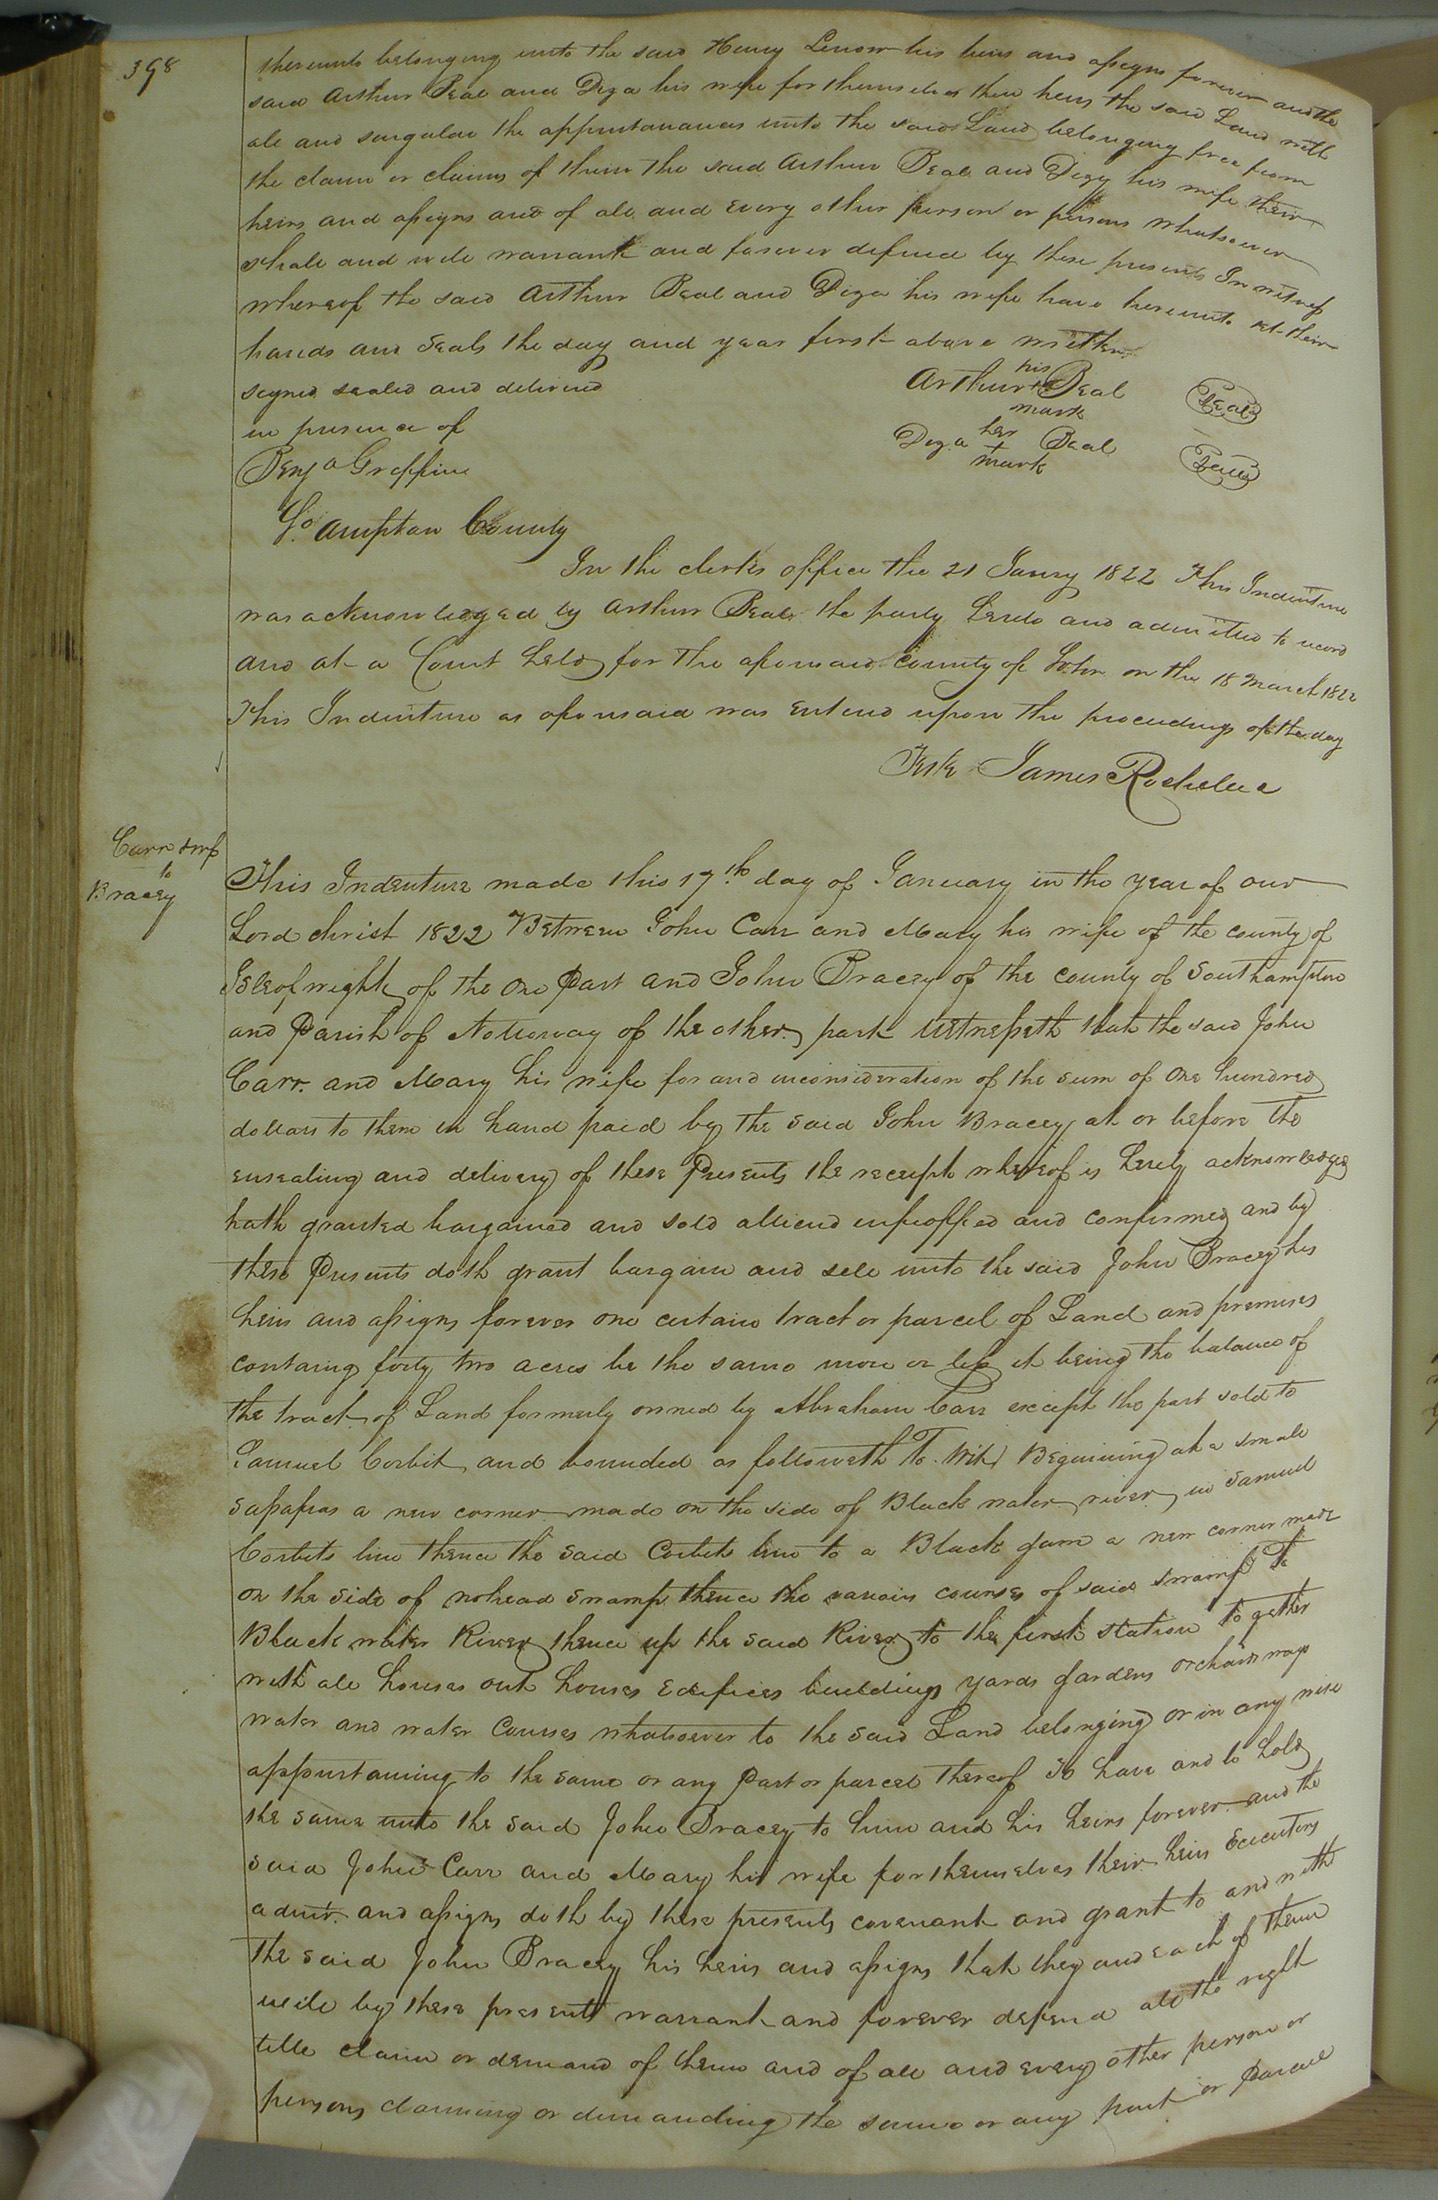 398
thereunto belonging unto the said Henry Lenow his heirs and assigns forever and the
said Arthur Beal and Diza his wife for themselves their heirs the said Land with
all and singular the appurtanances unto the said Land belonging free from
the claim or claims of them the said Arthur Beal and Dizy his wife their
heirs and assigns and of all and every other person or persons whatsoever
shall and will warrant and forever defend by these presents In witness
whereof the said Arthur Beal and Diza his wife have hereunto set their
hands and Seals the day and year first above written
signed sealed and delivered
in presence of
Benja Griffin
his
Arthur + Beal Seal
mark
her
Diza + Beal Seal
mark
So. ampton County
In the clerks office the 21 Janry 1822 This Indenture
was acknowledged by Arthur Beal the party hereto and admitted to record
and at a Court held for the aforesaid County of Sohn on the 18 March 1822
This Indenture as aforesaid was entered upon the proceedings of the day
Teste James Rochelle
Carr & wf
to
Bracey
This Indenture made this 17th day of January in the year of our
Lord christ 1822 Between John Carr and Mary his wife of the county of
Isleofwight of the One Part and John Bracey of the county of Southampton
and Parish of Nottoway of the other part Witnesseth that the said John
Carr and Mary his wife for and inconsideration of the sum of One hundred
dollars to them in hand paid by the said John Bracey at or before the
ensealing and delivery of these Presents the receipt whereof is herely acknowledged
hath granted bargained and sold aliend infeoffed and confirmed and by
these Presents doth grant bargain and sell unto the said John Bracey his
heirs and assigns forever one certain tract or parcel of Land and premises
containg forty two acres be the same more or less it being the balance of
the tract of Land formerly owned by Abraham Carr except the part sold to
Samuel Corbit and bounded as followeth To Wit) Beginning at a small
sassafras a new corner made on the side of Black water river in Samuel
Corbits line thence the said Corbits line to a Black gum a new corner made
on the side of nohead swamp thence the various courses of said swamp To
Black water River thence up the said River to the first station together
with all houses out houses Edifices buildings yards gardens orchards ways
water and water Courses whatsoever to the said Land belonging or in any wise
appurtaining to the same or any Part or parcel thereof To have and to hold
the same unto the said John Bracey to him and his heirs forever and the
said John Carr and Mary his wife for themselves their heirs Executors
admrs. and assigns doth by these presents covenant and grant to and with
the said John Bracey his heirs and assigns that they and each of them
will by these presents warrant and forever defend all the right
title claim or demand of them and of all and every other person or
persons claiming or demanding the same or any part or Parcel